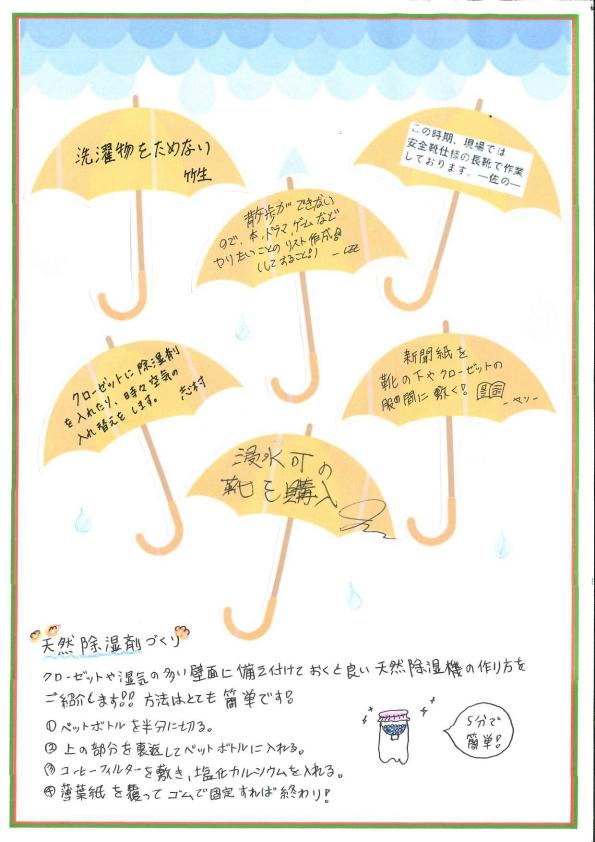 洗濯物をためない
竹生
この時期、現場では
安全靴仕様の長靴で作業
しております。―佐の―
散歩ができない
ので、本、ドラマ、ゲームなど
やりたいことのリスト作成
(してすること!)
クローゼットに除湿剤
を入れたり、時々空気の
入れ替えをします。 志村
新聞紙を
靴の下やクローゼットの
服の間に敷く!
浸水可の
靴を購入
天然除湿剤づくり
クローゼットや湿気の多い壁面に備え付けておくと良い天然除湿機の作り方を
ご紹介します!! 方法はとても簡単です!
①ペットボトルを半分に切る。
②上の部分を裏返してペットボトルに入れる。
③コーヒーフィルターを敷き、塩化カルシウムを入れる。
④薄葉紙を覆ってゴムで固定すれば終わり!
5分で
簡単!